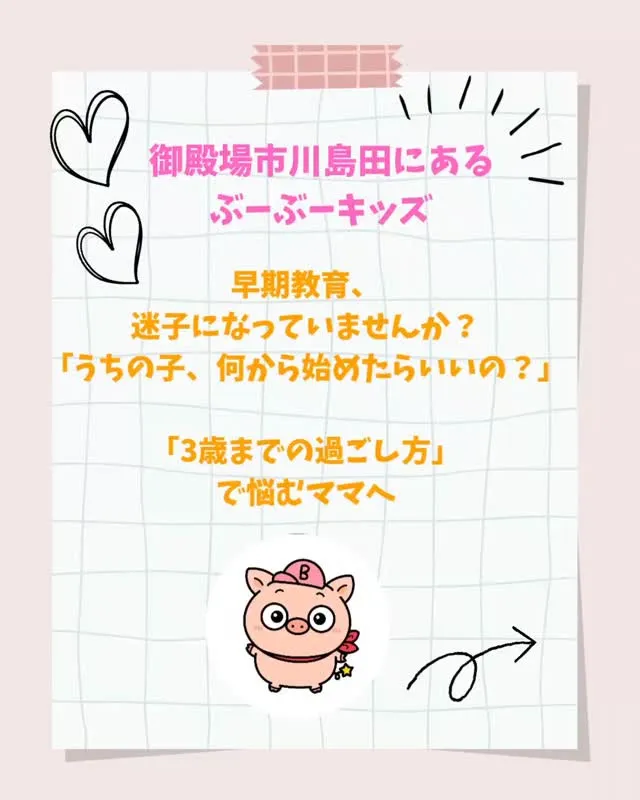 御殿場市川島田にある
ぶーぶーキッズ
早期教育、
迷子になっていませんか？
「うちの子、何から始めたらいいの？」
「3歳までの過ごし方」
で悩むママへ
B